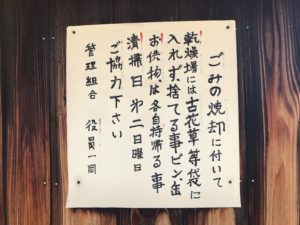 ごみの焼却に付いて
乾燥場には古花草等袋に
入れず、捨てる事ビン、缶
お供物、は各自持帰る事
清掃日 第二日曜日
ご協力下さい
管理組合 役員一同